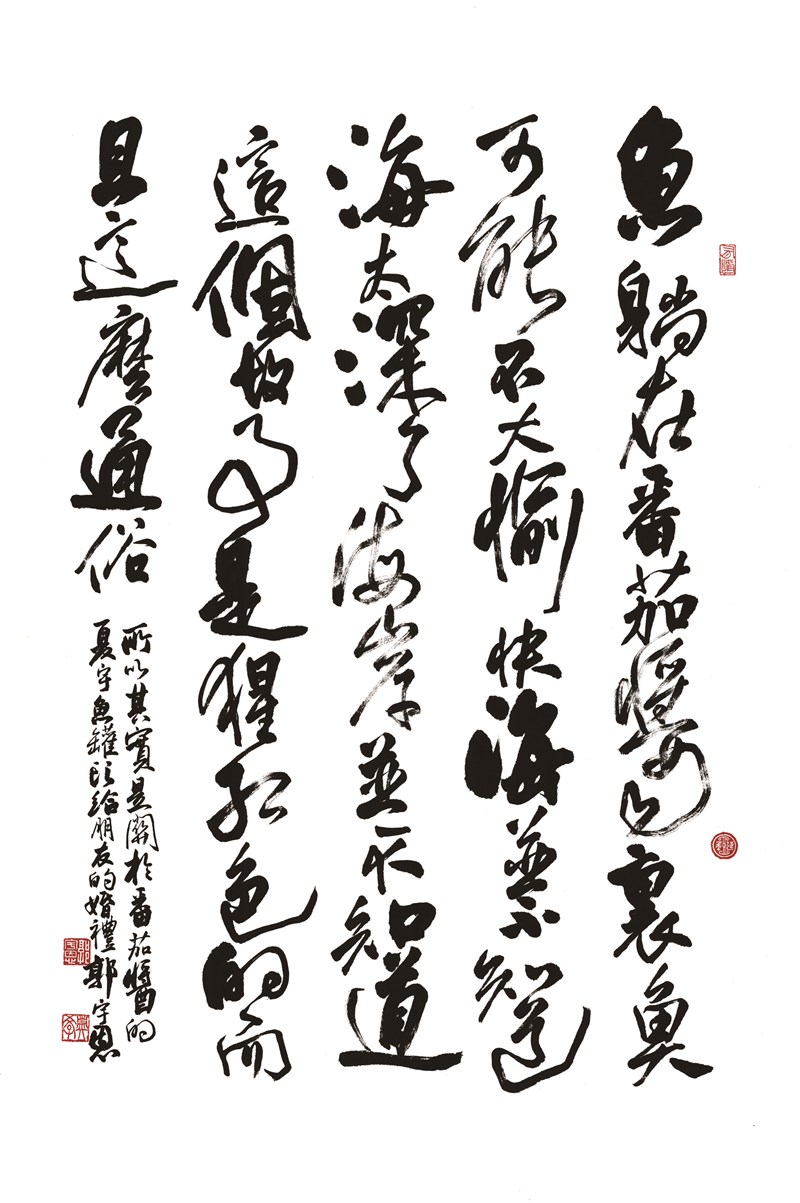 魚躺在番茄醬裏魚
可能不大愉快海並不知道
海太深了海岸並不知道
這個故事是猩紅色的而
且這麼通俗
所以其實是關於番茄醬的
夏宇魚罐頭給朋友的婚禮 郭宇恩